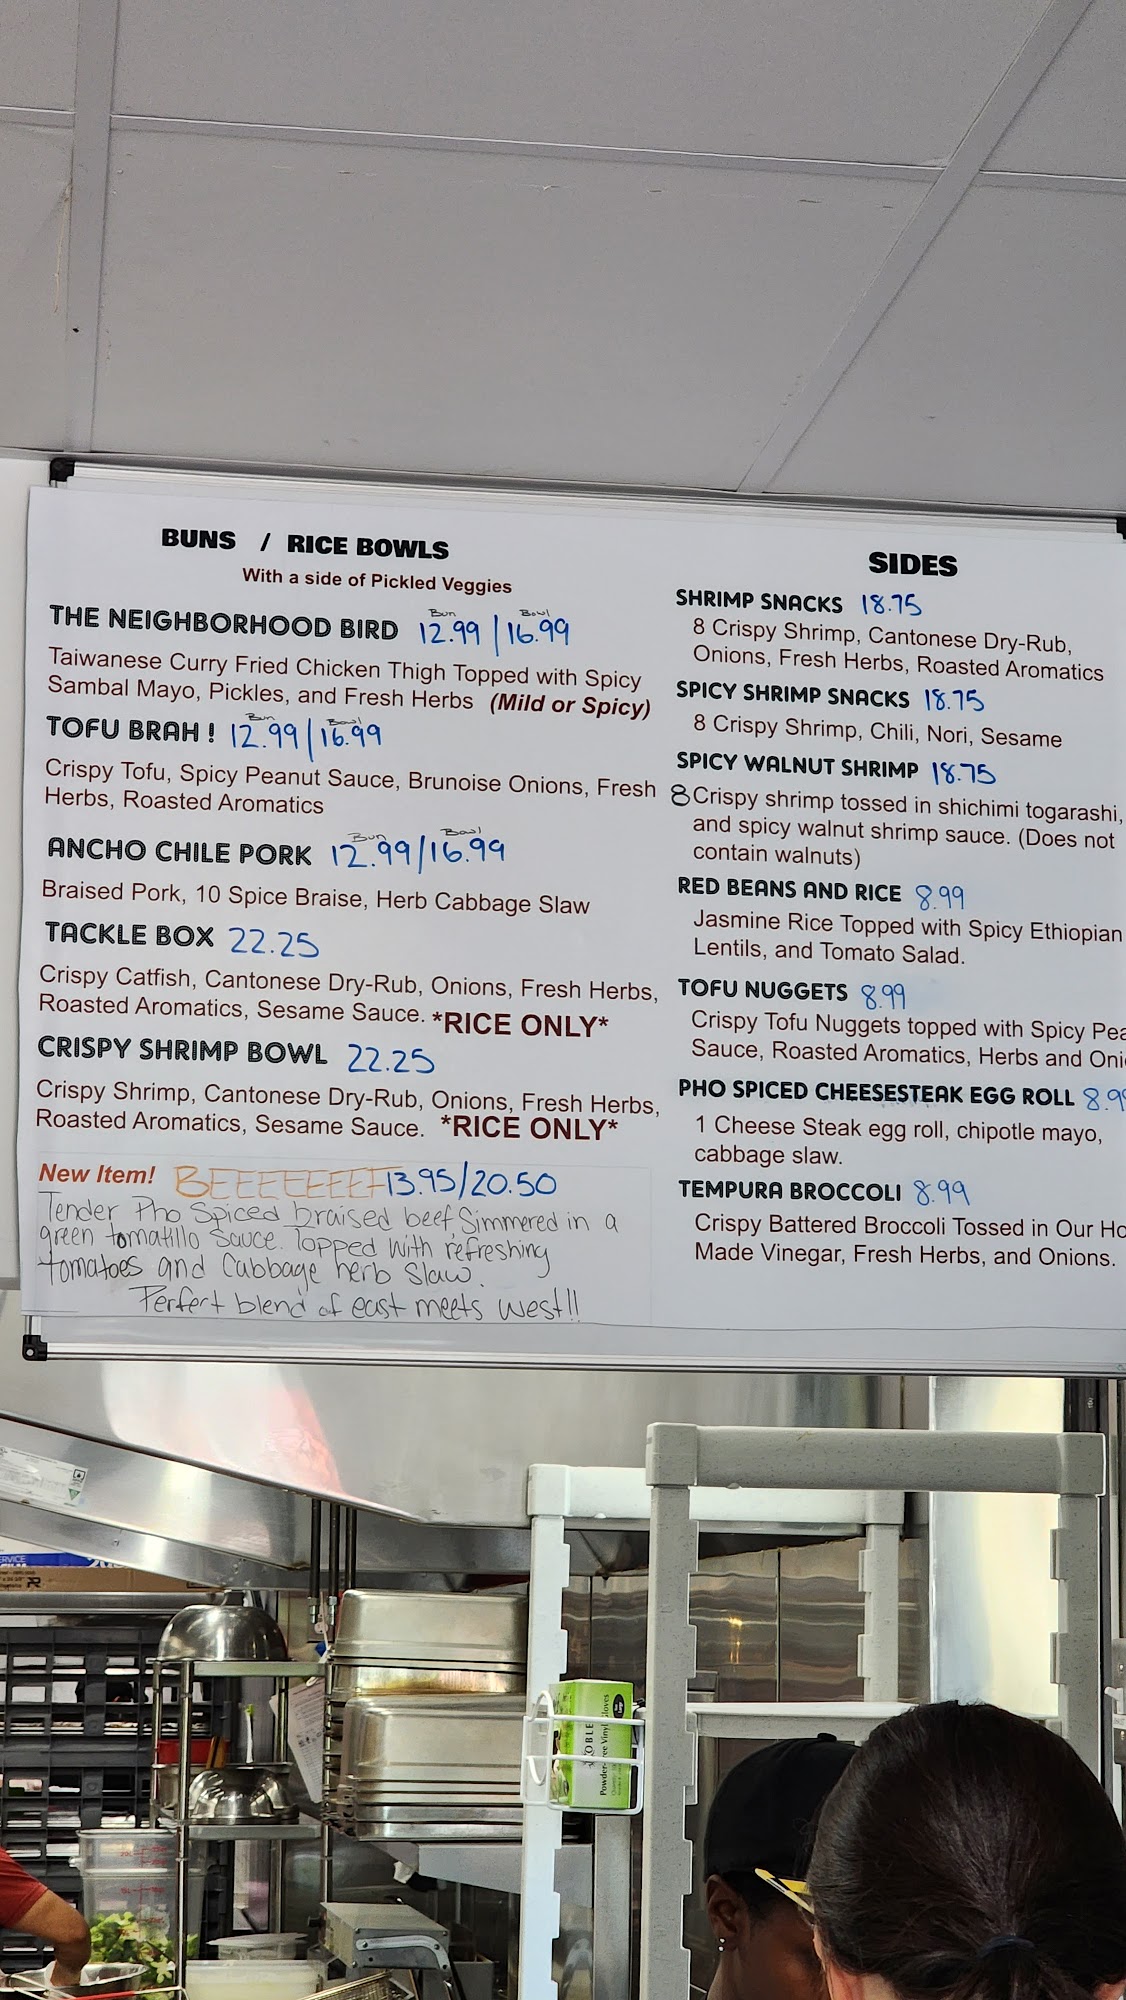 BUNS / RICE BOWLS
With a side of Pickled Veggies
THE NEIGHBORHOOD BIRD Bun 12.99 / Bowl 16.99
Taiwanese Curry Fried Chicken Thigh Topped with Spicy
Sambal Mayo, Pickles, and Fresh Herbs (Mild or Spicy)
TOFU BRAH! Bun 12.99 / Bowl 16.99
Crispy Tofu, Spicy Peanut Sauce, Brunoise Onions, Fresh
Herbs, Roasted Aromatics
ANCHO CHILE PORK Bun 12.99 / Bowl 16.99
Braised Pork, 10 Spice Braise, Herb Cabbage Slaw
TACKLE BOX 22.25
Crispy Catfish, Cantonese Dry-Rub, Onions, Fresh Herbs,
Roasted Aromatics, Sesame Sauce. *RICE ONLY*
CRISPY SHRIMP BOWL 22.25
Crispy Shrimp, Cantonese Dry-Rub, Onions, Fresh Herbs,
Roasted Aromatics, Sesame Sauce. *RICE ONLY*
New Item! BEEEEEEEF 13.95/20.50
Tender Pho Spiced braised beef, Simmered in a
green tomatillo Sauce. Topped with refreshing
tomatoes and Cabbage herb slaw.
Perfert blend of east meets west!!
SIDES
SHRIMP SNACKS 18.75
8 Crispy Shrimp, Cantonese Dry-Rub,
Onions, Fresh Herbs, Roasted Aromatics
SPICY SHRIMP SNACKS 18.75
8 Crispy Shrimp, Chili, Nori, Sesame
SPICY WALNUT SHRIMP 18.75
8 Crispy shrimp tossed in shichimi togarashi,
and spicy walnut shrimp sauce. (Does not
contain walnuts)
RED BEANS AND RICE 8.99
Jasmine Rice Topped with Spicy Ethiopian
Lentils, and Tomato Salad.
TOFU NUGGETS 8.99
Crispy Tofu Nuggets topped with Spicy Pea
Sauce, Roasted Aromatics, Herbs and Oni
PHO SPICED CHEESESTEAK EGG ROLL 8.99
1 Cheese Steak egg roll, chipotle mayo,
cabbage slaw.
TEMPURA BROCCOLI 8.99
Crispy Battered Broccoli Tossed in Our Ho
Made Vinegar, Fresh Herbs, and Onions.